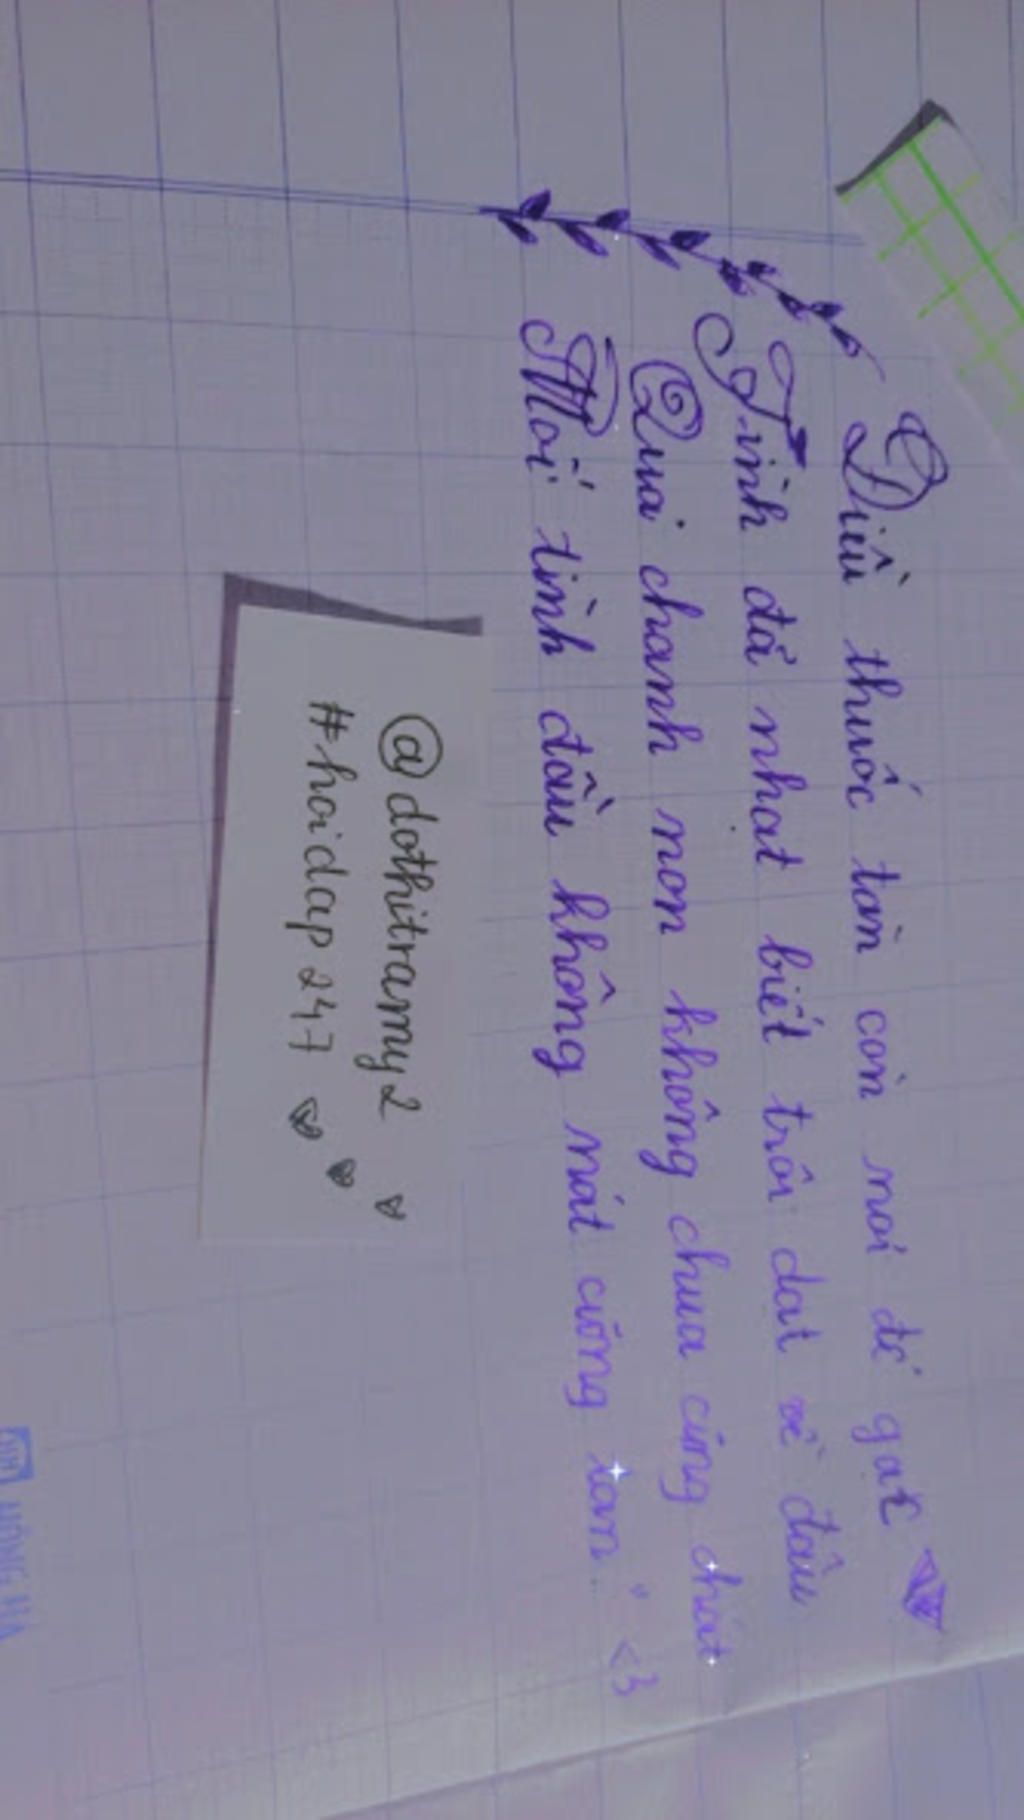 Điếu thuốc tàn còn nơi để gạt
Tình đã nhạt biết trôi dạt về đâu
Quả chanh non không chua cũng chát
Mối tình đầu không nát cũng tan." <3
@dothitramy2
#hoidap247